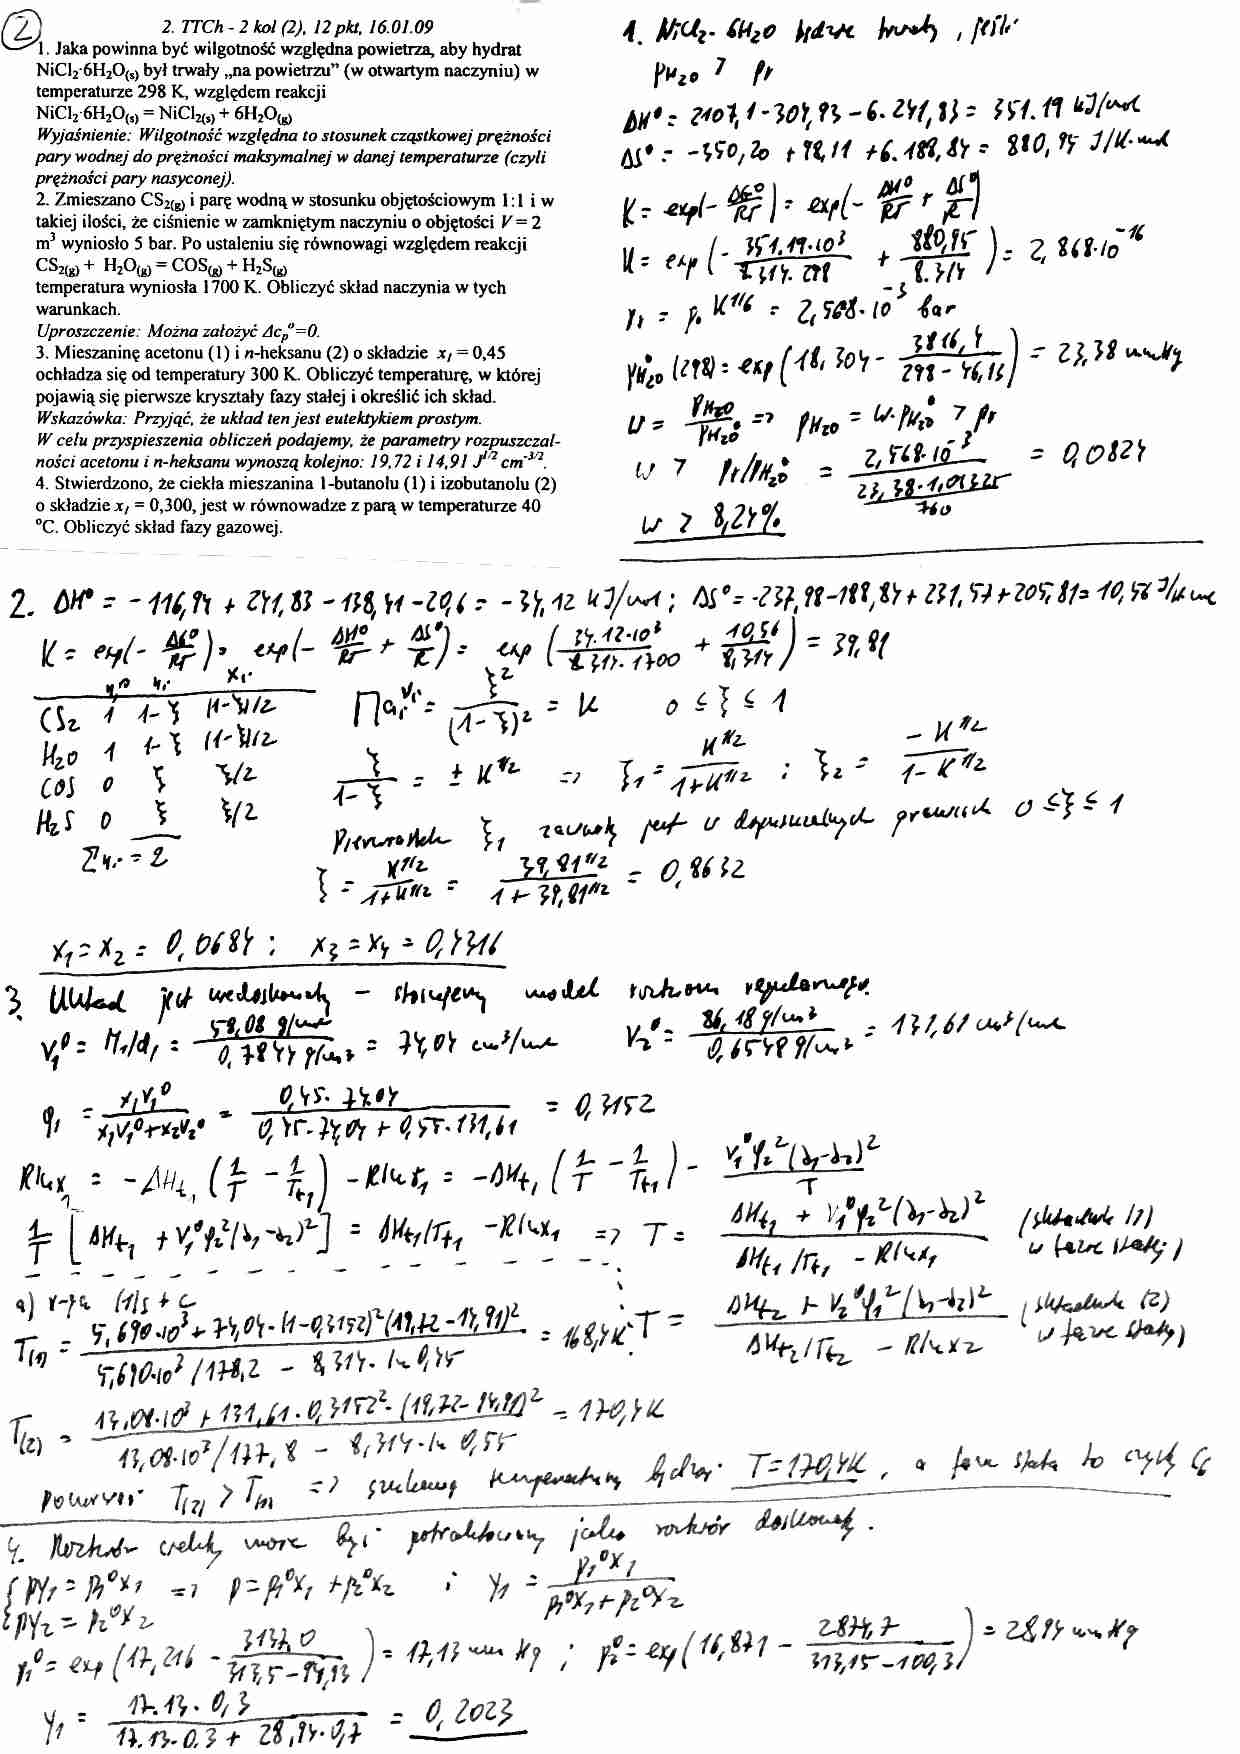 2
2. TTCh - 2 kol (2), 12 pkt, 16.01.09
1. Jaka powinna być wilgotność względna powietrza, aby hydrat
NiCl2·6H2O(s) był trwały „na powietrzu” (w otwartym naczyniu) w
temperaturze 298 K, względem reakcji
NiCl2·6H2O(s) = NiCl2(s) + 6H2O(g)
Wyjaśnienie: Wilgotność względna to stosunek cząstkowej prężności
pary wodnej do prężności maksymalnej w danej temperaturze (czyli
prężności pary nasyconej).
2. Zmieszano CS2(g) i parę wodną w stosunku objętościowym 1:1 i w
takiej ilości, że ciśnienie w zamkniętym naczyniu o objętości V = 2
m³ wyniosło 5 bar. Po ustaleniu się równowagi względem reakcji
CS2(g) + H2O(g) = COS(g) + H2S(g)
temperatura wyniosła 1700 K. Obliczyć skład naczynia w tych
warunkach.
Uproszczenie: Można założyć Δcp°=0.
3. Mieszaninę acetonu (1) i n-heksanu (2) o składzie x1 = 0,45
ochładza się od temperatury 300 K. Obliczyć temperaturę, w której
pojawią się pierwsze kryształy fazy stałej i określić ich skład.
Wskazówka: Przyjąć, że układ ten jest eutektykiem prostym.
W celu przyspieszenia obliczeń podajemy, że parametry rozpuszczal-
ności acetonu i n-heksanu wynoszą kolejno: 19,72 i 14,91 J^1/2 cm^-3/2.
4. Stwierdzono, że ciekła mieszanina 1-butanolu (1) i izobutanolu (2)
o składzie x1 = 0,300, jest w równowadze z parą w temperaturze 40
°C. Obliczyć skład fazy gazowej.
1. NiCl2·6H2O będzie trwały, jeśli
pH2O > pr
ΔH° = 2107,1-304,93-6·241,83 = 351.19 kJ/mol
ΔS° = -350,20 + 98,11 + 6·188,84 = 880,95 J/K·mol
K = exp(-ΔG°/RT) = exp(-ΔH°/RT + ΔS°/R)
K = exp(-351.19·10³/8.314·298 + 880,95/8.314) = 2,868·10^-16
pr = p° K^1/6 = 2,568·10^-3 bar
p°H2O(298) = exp(18,304 - 3816,4/298-46,13) = 23,38 mmHg
w = pH2O/p°H2O => pH2O = w·p°H2O > pr
w > pr/p°H2O = 2,568·10^-3/23,38·1,01325/760 = 0,0824
w > 8,24%
2. ΔH° = -116,94 + 241,83 - 138,41 - 20,6 = -34,12 kJ/mol; ΔS° = -237,98-188,84+231,57+205,81=10,56 J/K mol
K = exp(-ΔG°/RT) = exp(-ΔH°/RT + ΔS°/R) = exp(34.12·10³/8.314·1700 + 10,56/8,314) = 39,81
ni° ni xi
CS2 1 1-ξ (1-ξ)/2
H2O 1 1-ξ (1-ξ)/2
COS 0 ξ ξ/2
H2S 0 ξ ξ/2
Σni = 2
Πai^νi = ξ²/(1-ξ)² = K 0 ≤ ξ ≤ 1
ξ/1-ξ = ± K^1/2 => ξ1 = K^1/2/1+K^1/2 ; ξ2 = -K^1/2/1-K^1/2
Pierwiastek ξ1 zawsze jest w dopuszczalnych granicach 0 ≤ ξ ≤ 1
ξ = K^1/2/1+K^1/2 = 39,81^1/2/1+39,81^1/2 = 0,8632
x1 = x2 = 0,0684 ; x3 = x4 = 0,4316
3. Układ jest niedoskonały - stosujemy model roztworu regularnego.
V1° = M1/d1 = 58,08 g/mol/0,7844 g/cm³ = 74,04 cm³/mol V2° = 86,18 g/cm³/0,6548 g/cm³ = 131,61 cm³/mol
φ1 = x1V1°/x1V1°+x2V2° = 0,45·74.04/0,45·74,04 + 0,55·131,61 = 0,3152
Rlnx1 = -ΔHt1(1/T - 1/Tt1) - Rlnγ1 = -ΔHt1(1/T - 1/Tt1) - V1°φ2²(δ1-δ2)²/T
1/T [ΔHt1 + V1°φ2²(δ1-δ2)²] = ΔHt1/Tt1 - Rlnx1 => T = ΔHt1 + V1°φ2²(δ1-δ2)²/ΔHt1/Tt1 - Rlnx1 (składnik (1) w fazie stałej)
a) r-ga (1)s + c
T(1) = 5,690·10³+74,04·(1-0,3152)²(19,72-14,91)²/5,690·10³/178,2 - 8,314·ln 0,45 = 168,4K
T = ΔHt2 + V2°φ1²(δ1-δ2)²/ΔHt2/Tt2 - Rlnx2 (składnik (2) w fazie stałej)
T(2) = 13,08·10³ + 131,61·0,3152²·(19,72-14,91)²/13,08·10³/177,8 - 8,314·ln 0,55 = 170,4K
Ponieważ T(2) > T(1) => szukaną temperaturą będzie T=170,4K, a faza stała to czysty C6
4. Roztwór ciekły może być potraktowany jako roztwór doskonały.
{ py1 = p1°x1 => p = p1°x1 + p2°x2 ; y1 = p1°x1/p1°x1+p2°x2
py2 = p2°x2
p1° = exp(17,216 - 3137,0/313,5-94,93) = 17,13 mm Hg ; p2° = exp(16,871 - 2874,7/313,15-100,3) = 28,94 mm Hg
y1 = 17.13·0,3/17.13·0.3 + 28,94·0,7 = 0,2023